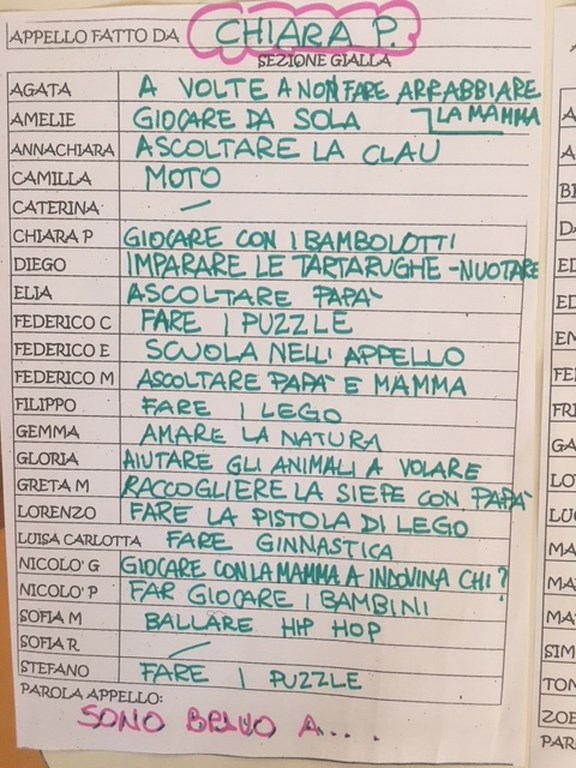 APPELLO FATTO DA CHIARA P.
SEZIONE GIALLA
AGATA A VOLTE A NON FARE ARRABBIARE
LA MAMMA
AMELIE GIOCARE DA SOLA
ANNACHIARA ASCOLTARE LA CLAU
CAMILLA MOTO
CATERINA –
CHIARA P GIOCARE CON I BAMBOLOTTI
DIEGO IMPARARE LE TARTARUGHE - NUOTARE
ELIA ASCOLTARE PAPA'
FEDERICO C FARE I PUZZLE
FEDERICO E SCUOLA NELL' APPELLO
FEDERICO M ASCOLTARE PAPA' E MAMMA
FILIPPO FARE I LEGO
GEMMA AMARE LA NATURA
GLORIA AIUTARE GLI ANIMALI A VOLARE
GRETA M RACCOGLIERE LA SIEPE CON PAPA'
LORENZO FARE LA PISTOLA DI LEGO
LUISA CARLOTTA FARE GINNASTICA
NICOLO' G GIOCARE CON LA MAMMA A INDOVINA CHI?
NICOLO' P FAR GIOCARE I BAMBINI
SOFIA M BALLARE HIP HOP
SOFIA R –
STEFANO FARE I PUZZLE
PAROLA APPELLO:
SONO BRAVO A....
A
A
BI
ED
ED
EM
FE
FRI
GA
LO
LU
MA
MA
MA
SIM
TOM
ZOE
PAR